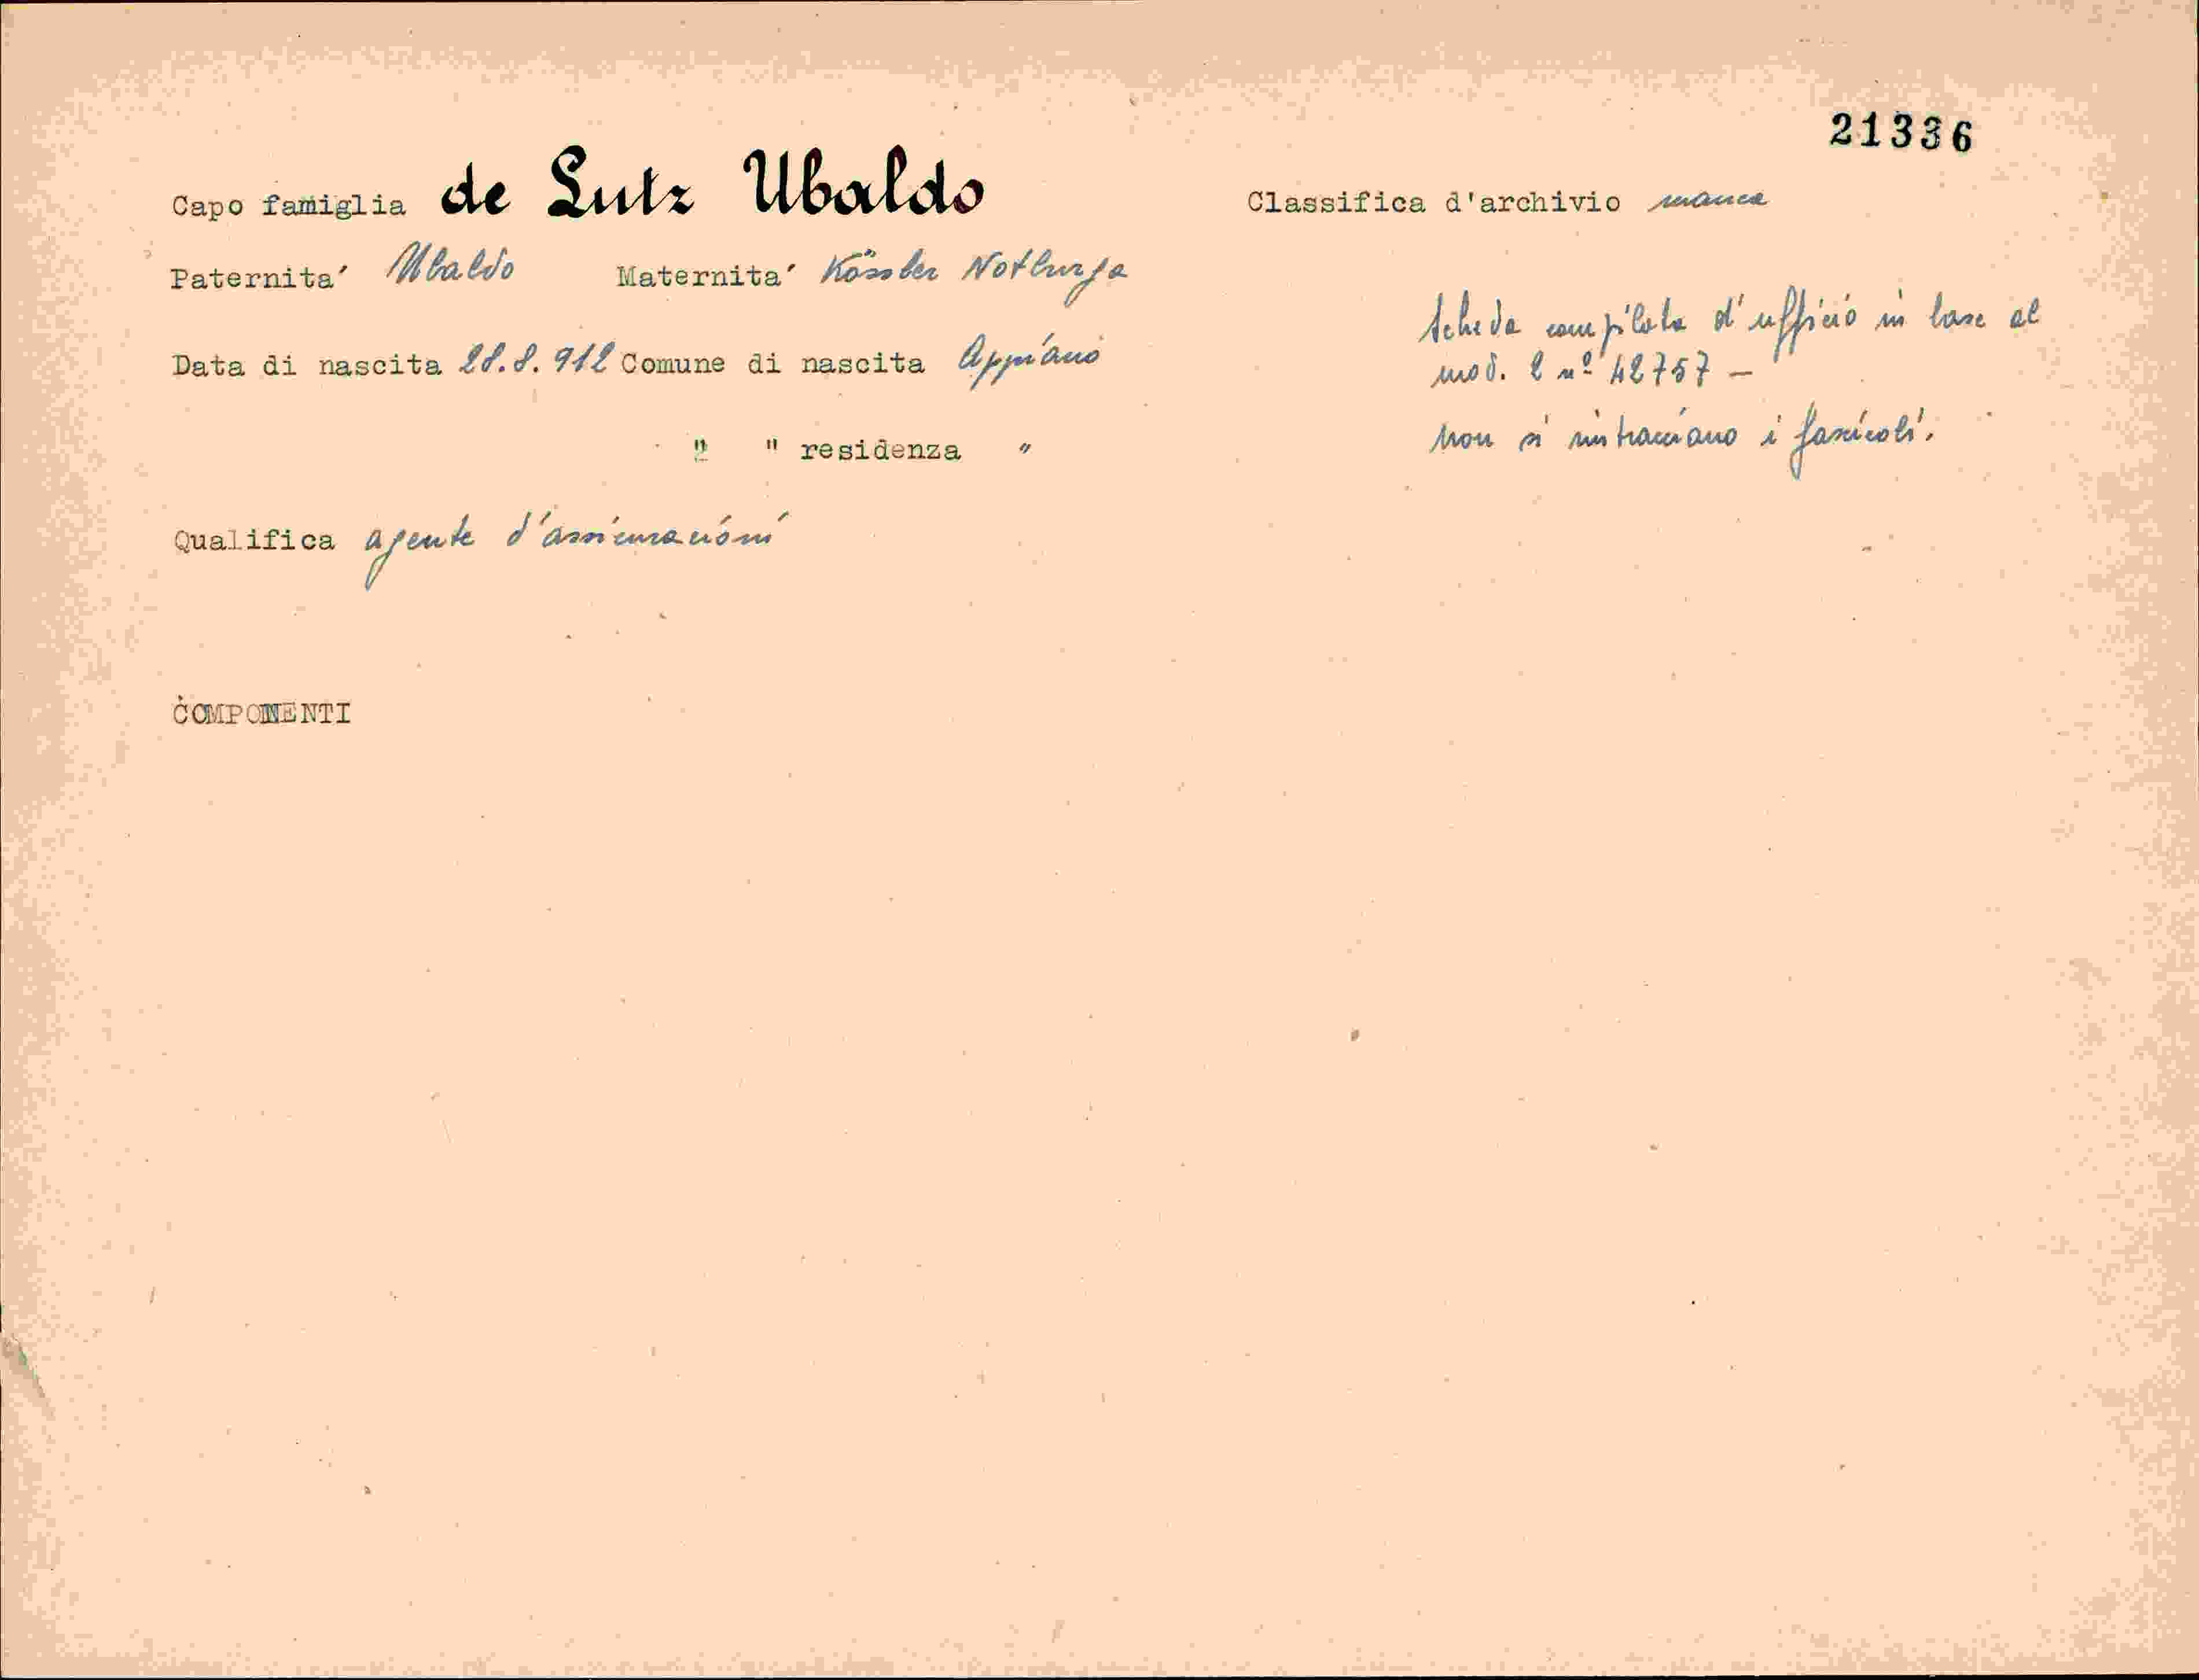 21336
Capo famiglia de Lutz Ubaldo Classifica d'archivio manca
Paternita' Ubaldo Maternita' Kössler Notburga
Data di nascita 28.8.912 Comune di nascita Appiano
" " residenza "
Scheda compilata d'ufficio in base al
mod. 2 nº 42757 —
Non si rintracciano i fascicoli.
Qualifica agente d'assicurazioni
COMPONENTI